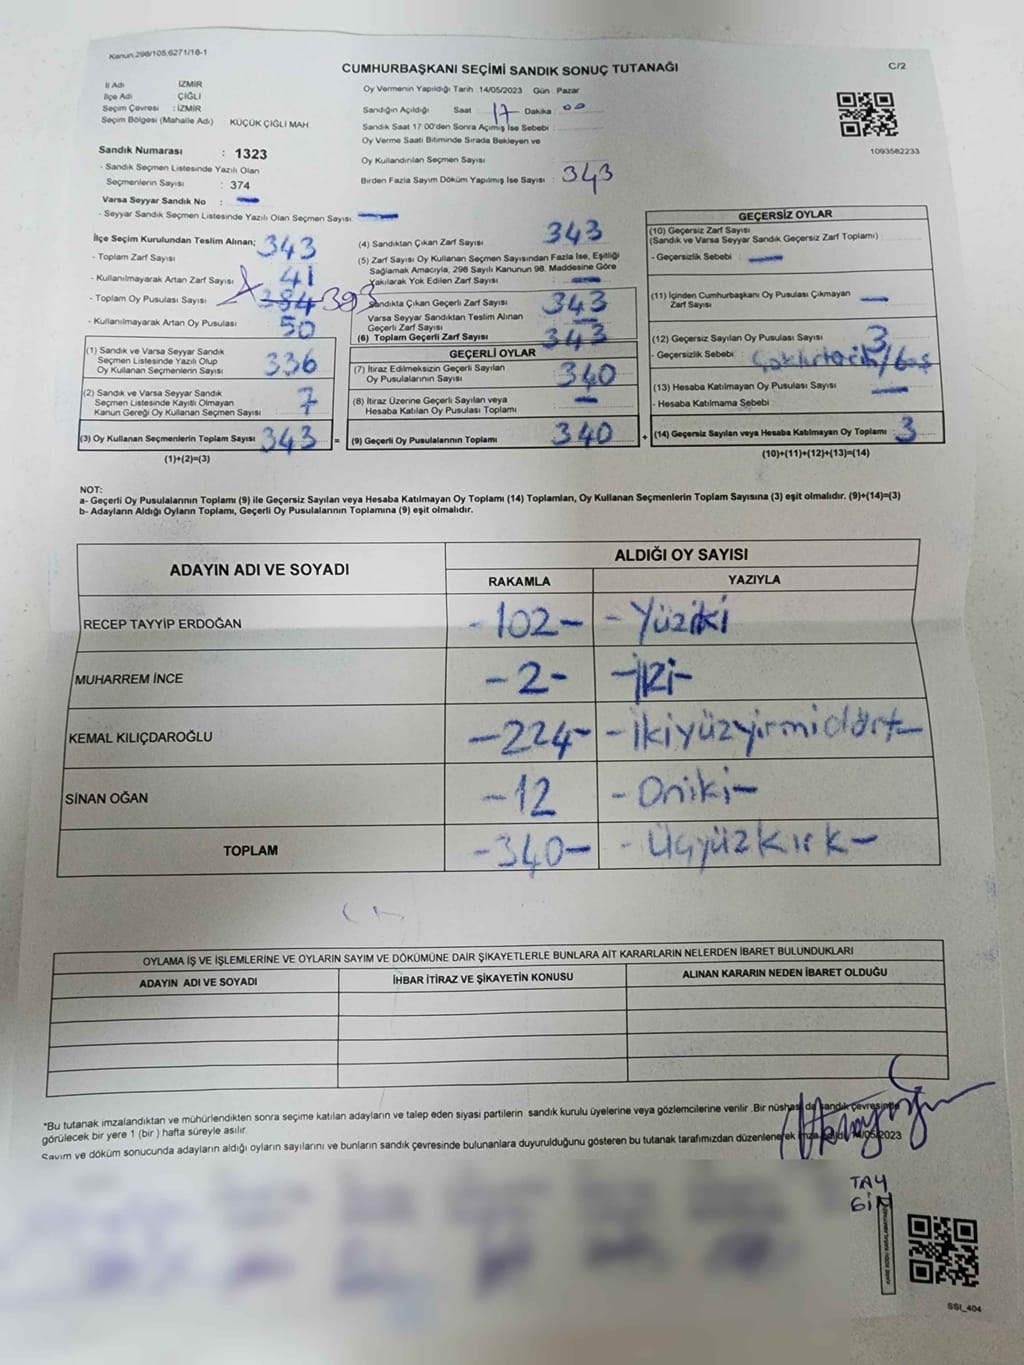 Kanun.298/105,6271/18-1
CUMHURBAŞKANI SEÇİMİ SANDIK SONUÇ TUTANAĞI
C/2
İl Adı İZMİR
İlçe Adı ÇİĞLİ
Seçim Çevresi : İZMİR
Seçim Bölgesi (Mahalle Adı) KÜÇÜK ÇİĞLİ MAH
Sandık Numarası : 1323
- Sandık Seçmen Listesinde Yazılı Olan
Seçmenlerin Sayısı : 374
Varsa Seyyar Sandık No : -
- Seyyar Sandık Seçmen Listesinde Yazılı Olan Seçmen Sayısı: -
Oy Vermenin Yapıldığı Tarih 14/05/2023 Gün : Pazar
Sandığın Açıldığı Saat 17 Dakika 00
Sandık Saat 17:00'den Sonra Açılmış İse Sebebi :
Oy Verme Saati Bitiminde Sırada Bekleyen ve
Oy Kullandırılan Seçmen Sayısı
Birden Fazla Sayım Döküm Yapılmış İse Sayısı : 343
1093582233
İlçe Seçim Kurulundan Teslim Alınan;
- Toplam Zarf Sayısı 343
- Kullanılmayarak Artan Zarf Sayısı 41
- Toplam Oy Pusulası Sayısı 384 393
- Kullanılmayarak Artan Oy Pusulası 50
(1) Sandık ve Varsa Seyyar Sandık
Seçmen Listesinde Yazılı Olup
Oy Kullanan Seçmenlerin Sayısı 336
(2) Sandık ve Varsa Seyyar Sandık
Seçmen Listesinde Kayıtlı Olmayan
Kanun Gereği Oy Kullanan Seçmen Sayısı 7
(3) Oy Kullanan Seçmenlerin Toplam Sayısı 343 =
(1)+(2)=(3)
(4) Sandıktan Çıkan Zarf Sayısı 343
(5) Zarf Sayısı Oy Kullanan Seçmen Sayısından Fazla İse, Eşitliği
Sağlamak Amacıyla, 298 Sayılı Kanunun 98. Maddesine Göre
Yakılarak Yok Edilen Zarf Sayısı -
Sandıkta Çıkan Geçerli Zarf Sayısı 343
Varsa Seyyar Sandıktan Teslim Alınan
Geçerli Zarf Sayısı -
(6) Toplam Geçerli Zarf Sayısı 343
GEÇERLİ OYLAR
(7) İtiraz Edilmeksizin Geçerli Sayılan
Oy Pusulalarının Sayısı 340
(8) İtiraz Üzerine Geçerli Sayılan veya
Hesaba Katılan Oy Pusulası Toplamı -
(9) Geçerli Oy Pusulalarının Toplamı 340 +
GEÇERSİZ OYLAR
(10) Geçersiz Zarf Sayısı
(Sandık ve Varsa Seyyar Sandık Geçersiz Zarf Toplamı)
- Geçersizlik Sebebi : -
(11) İçinden Cumhurbaşkanı Oy Pusulası Çıkmayan
Zarf Sayısı -
(12) Geçersiz Sayılan Oy Pusulası Sayısı 3
- Geçersizlik Sebebi :
(13) Hesaba Katılmayan Oy Pusulası Sayısı -
- Hesaba Katılmama Sebebi :
(14) Geçersiz Sayılan veya Hesaba Katılmayan Oy Toplamı : 3
(10)+(11)+(12)+(13)=(14)
NOT:
a- Geçerli Oy Pusulalarının Toplamı (9) ile Geçersiz Sayılan veya Hesaba Katılmayan Oy Toplamı (14) Toplamları, Oy Kullanan Seçmenlerin Toplam Sayısına (3) eşit olmalıdır. (9)+(14)=(3)
b- Adayların Aldığı Oyların Toplamı, Geçerli Oy Pusulalarının Toplamına (9) eşit olmalıdır.
ADAYIN ADI VE SOYADI
ALDIĞI OY SAYISI
RAKAMLA YAZIYLA
RECEP TAYYİP ERDOĞAN -102- -Yüziki
MUHARREM İNCE -2- -İki-
KEMAL KILIÇDAROĞLU -224- -İkiyüzyirmidört-
SİNAN OĞAN -12 -Oniki-
TOPLAM -340- -Üçyüzkırk-
OYLAMA İŞ VE İŞLEMLERİNE VE OYLARIN SAYIM VE DÖKÜMÜNE DAİR ŞİKAYETLERLE BUNLARA AİT KARARLARIN NELERDEN İBARET BULUNDUKLARI
ADAYIN ADI VE SOYADI İHBAR İTİRAZ VE ŞİKAYETİN KONUSU ALINAN KARARIN NEDEN İBARET OLDUĞU
*Bu tutanak imzalandıktan ve mühürlendikten sonra seçime katılan adayların ve talep eden siyasi partilerin sandık kurulu üyelerine veya gözlemcilerine verilir .Bir nüshası da sandık çevresinde
görülecek bir yere 1 (bir ) hafta süreyle asılır.
Sayım ve döküm sonucunda adayların aldığı oyların sayılarını ve bunların sandık çevresinde bulunanlara duyurulduğunu gösteren bu tutanak tarafımızdan düzenlenerek /05/2023
TAY
GİM
KARE KODU KARALAMAYINIZ
SSI_404